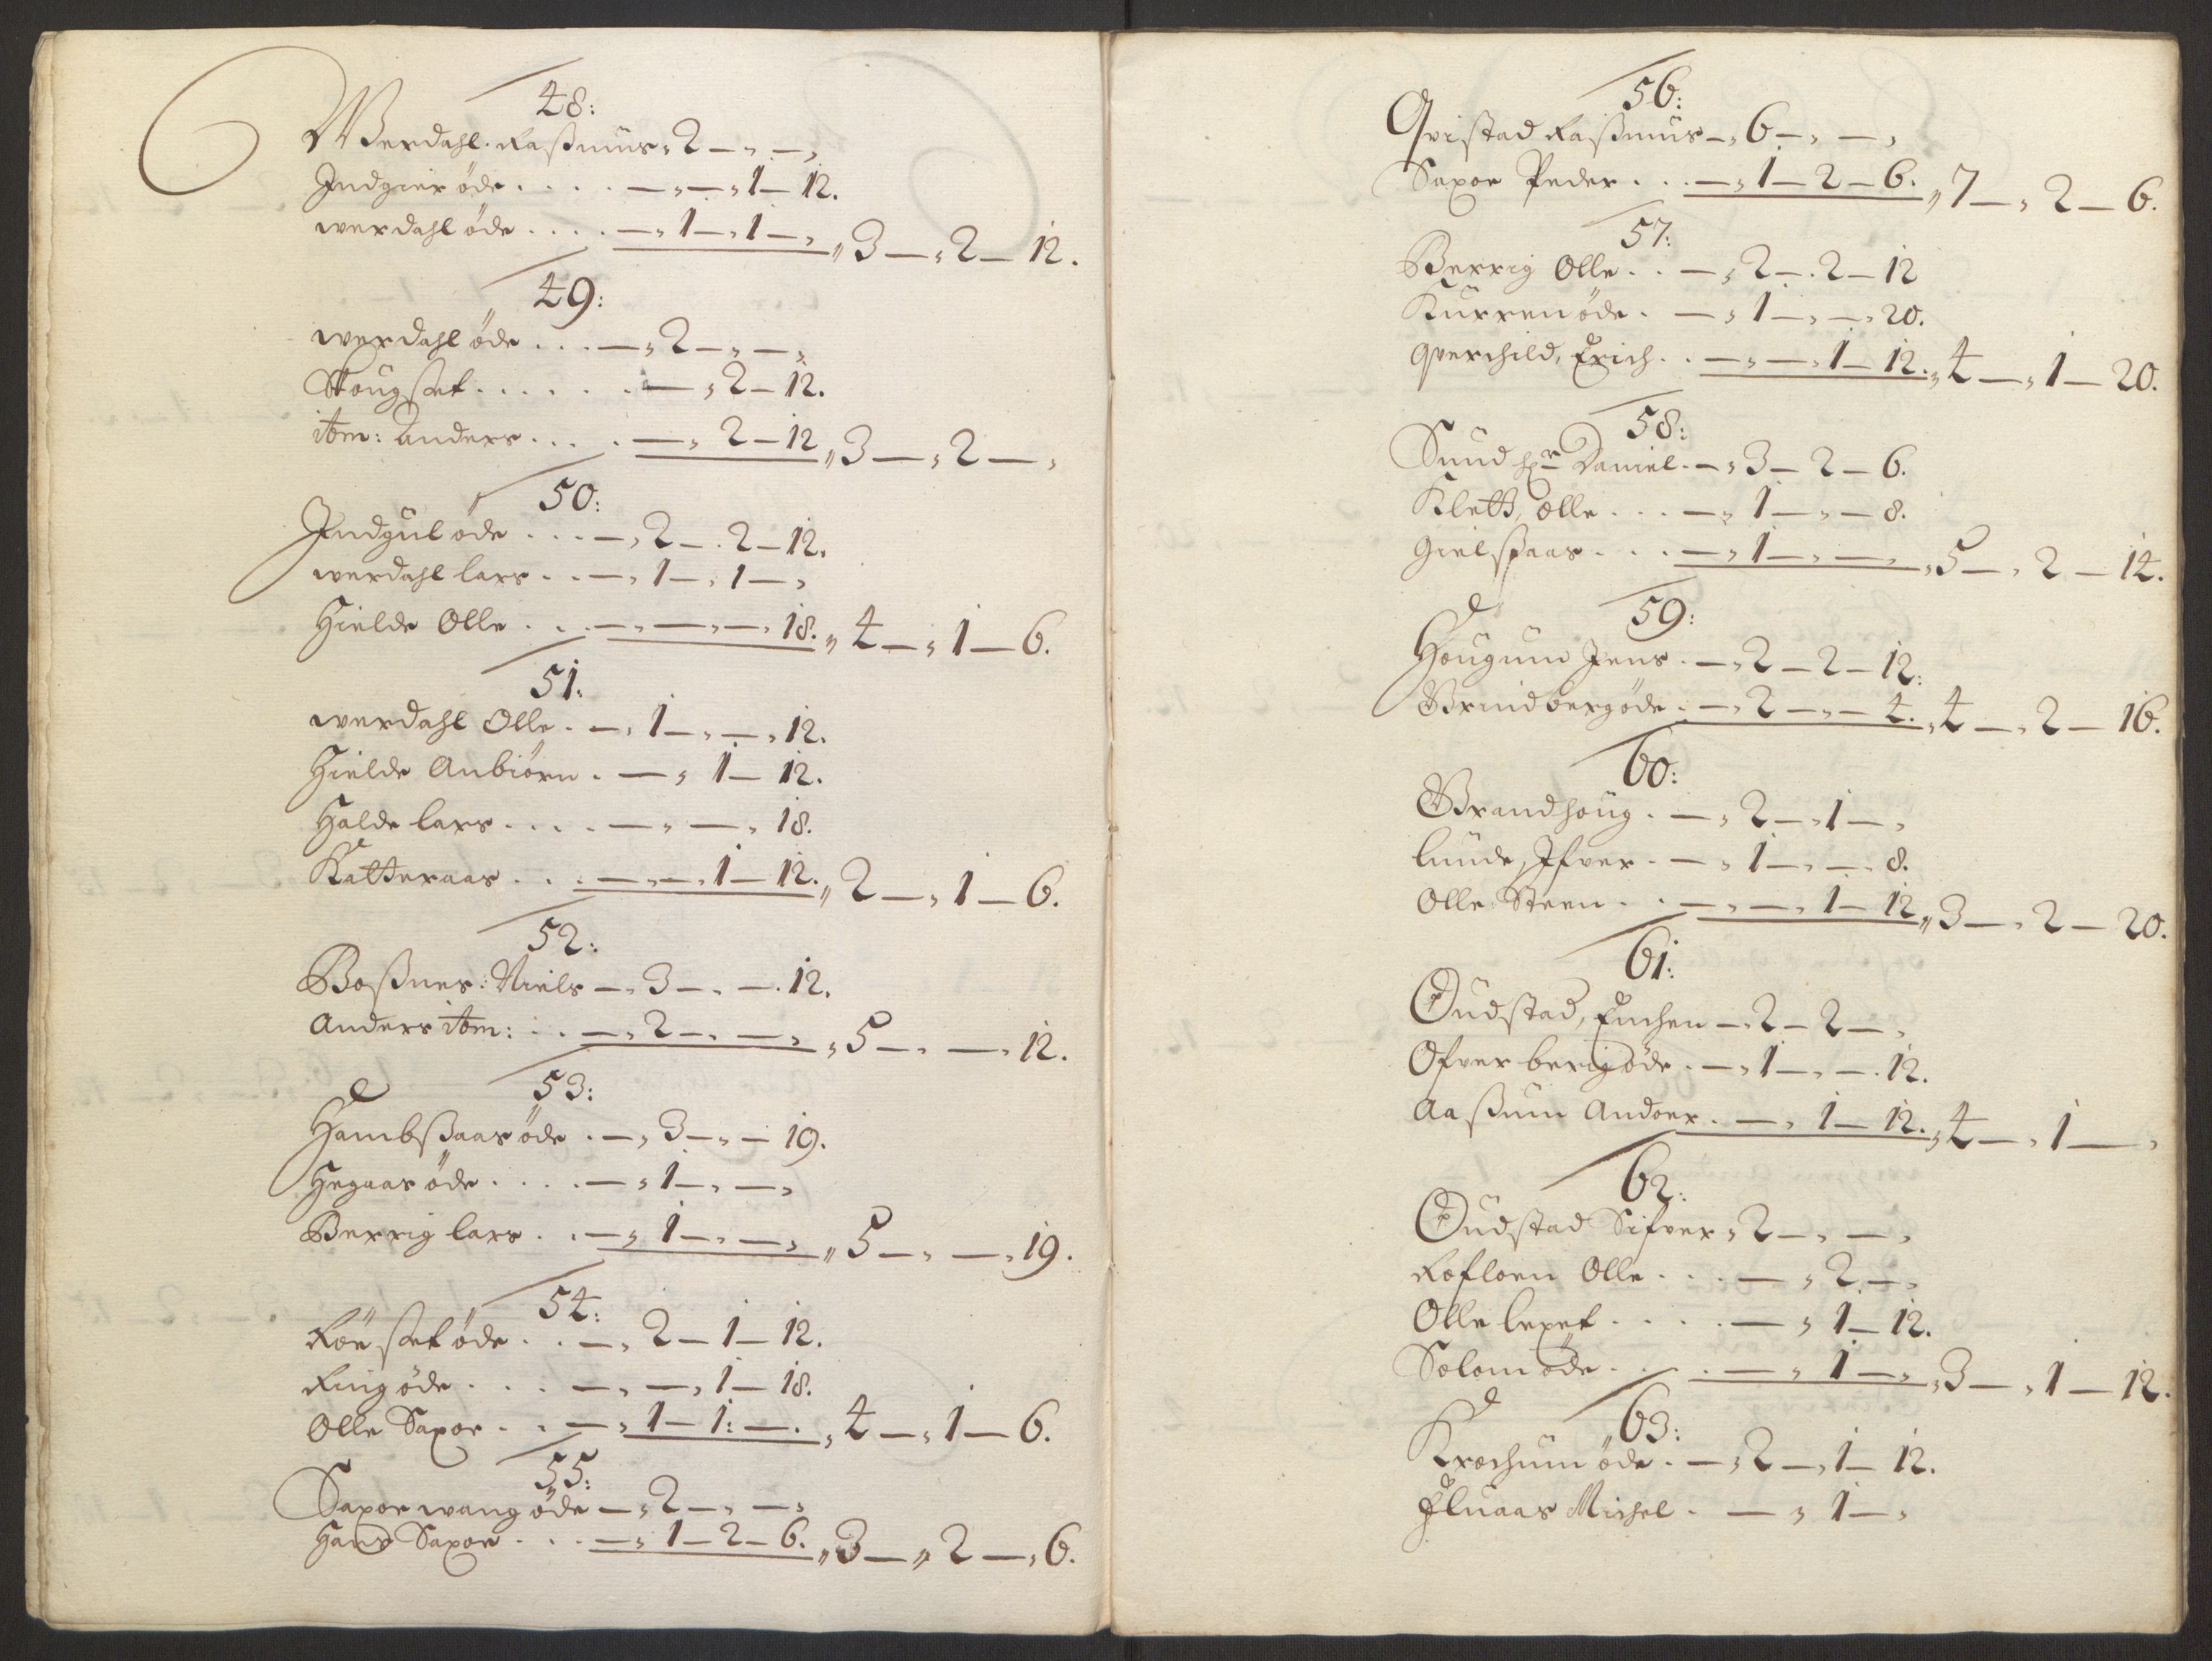 48:
Werdahl. Rassmus „ 2 — „ — „
Indgier öde . . . . — „ — „ 1 — 12.
werdahl öde . . . . — „ 1 — „ 1 — „ „ 3 — „ 2 — 12.
49:
werdahl öde . . . — „ 2 — „ — „
Skougset . . . . . . — „ 2 — 12.
itm: Anders . . . . — „ 2 — 12 „ 3 — „ 2 — „
50:
Indgul öde . . . — „ 2 — . 2 — 12.
werdahl lars . . — „ 1 — „ 1 — „
Hielde Olle . . . — „ — „ — „ 18. „ 4 — „ 1 — 6.
51:
werdahl Olle . — „ 1 — „ — „ 12.
Hielde Anbiörn . — „ 1 — 12.
Halde lars . . . . — „ — „ 18.
Katteraas . . . — „ — „ 1 — 12. „ 2 — „ 1 — 6.
52:
Bossnes: Niels — „ 3 — „ — . 12.
Anders itm: . . — „ 2 — „ — „ „ 5 — „ — „ 12.
53:
Hambssaas öde . — „ 3 — „ — 19.
Hegaas öde . . . . — „ 1 — „ — „
Berrig lars . . — „ 1 — „ — „ „ 5 — „ — „ 19.
54:
Röe set öde . . — „ 2 — 1 — 12.
Ring öde . . . — „ — „ 1 — 18.
Olle Saxor . . — „ 1 — 1: — . „ 4 — „ 1 — 6.
55:
Saxor wang öde — „ 2 — „ — „
Hans Saxor . . . — „ 1 — 2 — 6. „ 3 — „ 2 — „ 6.
56:
Qvistad Rassmus — „ 6 — „ — „
Saxor Peder . . . — „ 1 — 2 — 6. „ 7 — „ 2 — 6.
57:
Berrig Olle . . — „ 2 — . 2 — 12
Kurren öde . — „ 1 — „ — „ 20.
Qverchild, Erich . . — „ — „ 1 — 12. „ 4 — „ 1 — 20.
58:
Sund hr Daniel . — „ 3 — 2 — 6.
Klett, Olle . . . — „ 1 — „ — 8.
Gielssaas . . . — „ 1 — „ — „ „ 5 — „ 2 — 14.
59:
Hougum Jens . — „ 2 — 2 — 12.
Brindberg öde . — „ 2 — „ — 4. „ 4 — „ 2 — 16.
60:
Brandhoug . — „ 2 — „ 1 — „
lunde, Ifver . — „ 1 — „ — „ 8.
Olle: Steen . . — „ — „ 1 — 12 „ 3 — „ 2 — 20.
61:
Oudstad, Enchen — „ 2 — 2 — „
Ofver berig öde . — „ 1 — „ — . 12.
Aassum Andor . — „ 1 — 12. „ 4 — „ 1 — „
62:
Oudstad Sifver „ 2 — „ — „
Rofloen Olle . . . — „ 2 — „
Olle lexet . . . . — „ 1 — 12.
Solom öde . . . . — „ 1 — „ „ 3 — „ 1 — 12.
63:
Krochum öde . — „ 2 — „ 1 — 12.
Eluaas Michel . — „ 1 — „